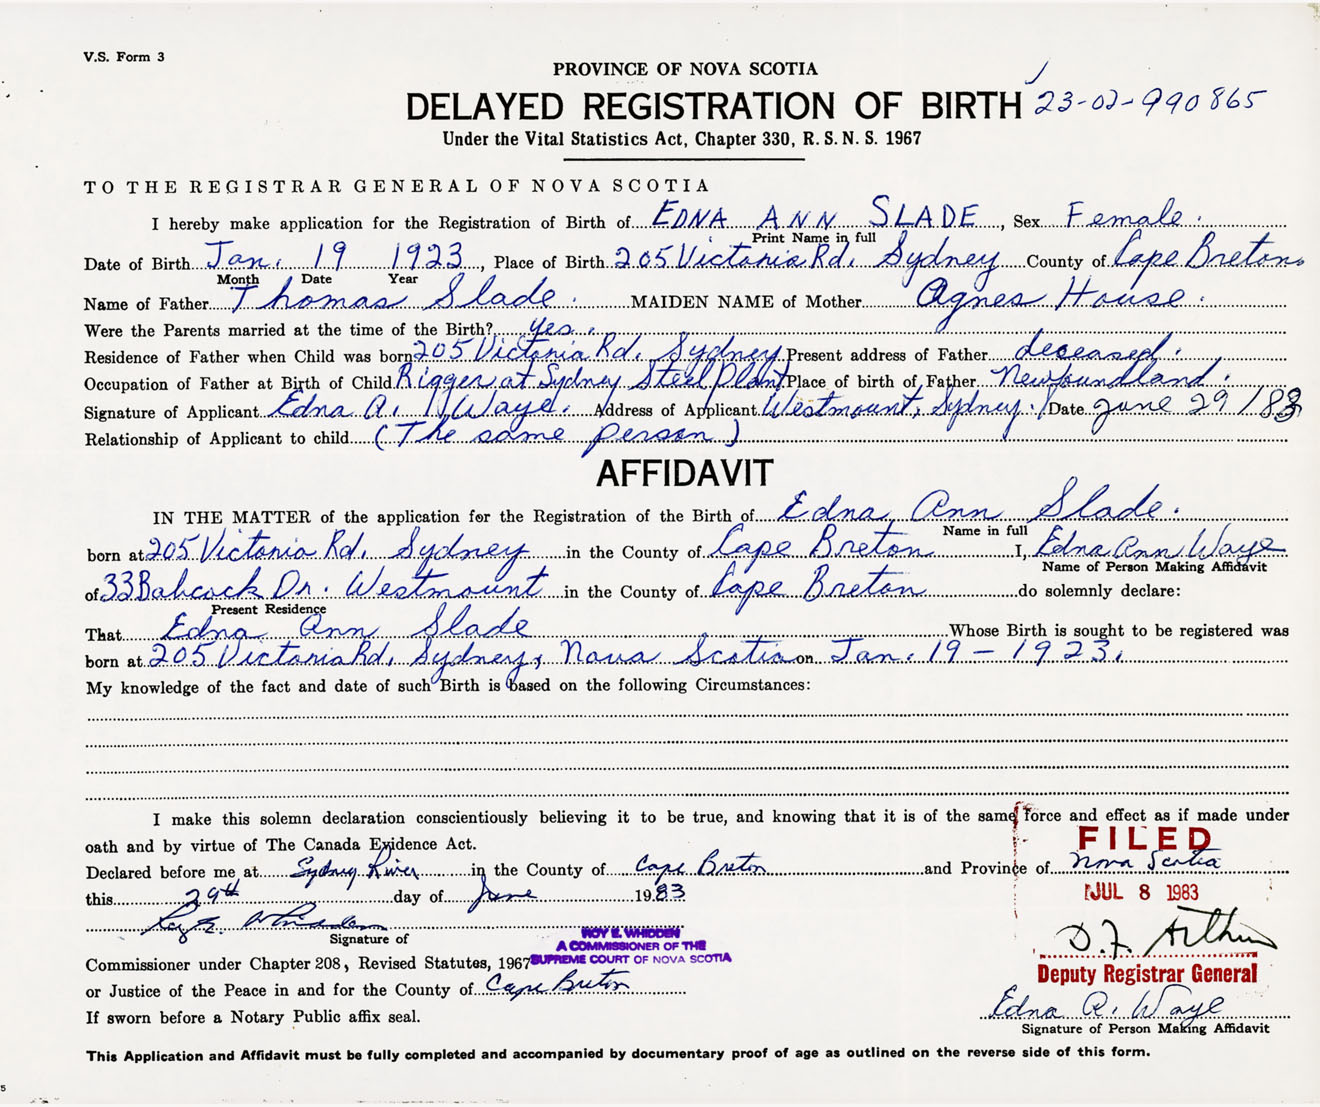 V.S. Form 3
PROVINCE OF NOVA SCOTIA
DELAYED REGISTRATION OF BIRTH 23-02-990865
Under the Vital Statistics Act, Chapter 330, R. S. N. S. 1967
TO THE REGISTRAR GENERAL OF NOVA SCOTIA
I hereby make application for the Registration of Birth of EDNA ANN SLADE, Sex Female.
Print Name in full
Date of Birth Jan. 19 1923, Place of Birth 205 Victoria Rd. Sydney County of Cape Breton.
Month Date Year
Name of Father Thomas Slade. MAIDEN NAME of Mother Agnes House.
Were the Parents married at the time of the Birth? yes.
Residence of Father when Child was born 205 Victoria Rd. Sydney Present address of Father deceased.
Occupation of Father at Birth of Child Rigger at Sydney Steel Plant Place of birth of Father Newfoundland.
Signature of Applicant Edna A. Waye. Address of Applicant Westmount, Sydney. Date June 29/83
Relationship of Applicant to child (The same person)
AFFIDAVIT
IN THE MATTER of the application for the Registration of the Birth of Edna Ann Slade.
Name in full
born at 205 Victoria Rd. Sydney in the County of Cape Breton I, Edna Ann Waye
Name of Person Making Affidavit
of 33 Babcock Dr. Westmount in the County of Cape Breton do solemnly declare:
Present Residence
That Edna Ann Slade Whose Birth is sought to be registered was
born at 205 Victoria Rd. Sydney, Nova Scotia on Jan. 19 - 1923.
My knowledge of the fact and date of such Birth is based on the following Circumstances:
I make this solemn declaration conscientiously believing it to be true, and knowing that it is of the same force and effect as if made under
oath and by virtue of The Canada Evidence Act.
FILED
Declared before me at Sydney River in the County of Cape Breton and Province of Nova Scotia
this 29th day of June 1983
JUL 8 1983
Roy E. Whidden
Signature of
ROY E. WHIDDEN
A COMMISSIONER OF THE
SUPREME COURT OF NOVA SCOTIA
D.F. Arthur
Deputy Registrar General
Commissioner under Chapter 208, Revised Statutes, 1967
or Justice of the Peace in and for the County of Cape Breton
Edna A. Waye
Signature of Person Making Affidavit
If sworn before a Notary Public affix seal.
This Application and Affidavit must be fully completed and accompanied by documentary proof of age as outlined on the reverse side of this form.
5